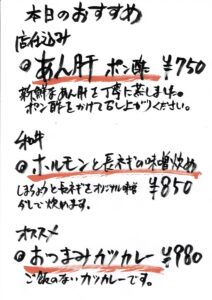 本日のおすすめ
店仕込み
あん肝 ポン酢 ¥750
新鮮なあん肝を丁寧に蒸しました。
ポン酢をかけて召し上がりください。
和牛
ホルモンと長ネギの味噌炒め
しまちょうと長ネギをオリジナル味噌 ¥850
で炒めます。
オススメ
おつまみカツカレー ¥980
ご飯のないカツカレーです。